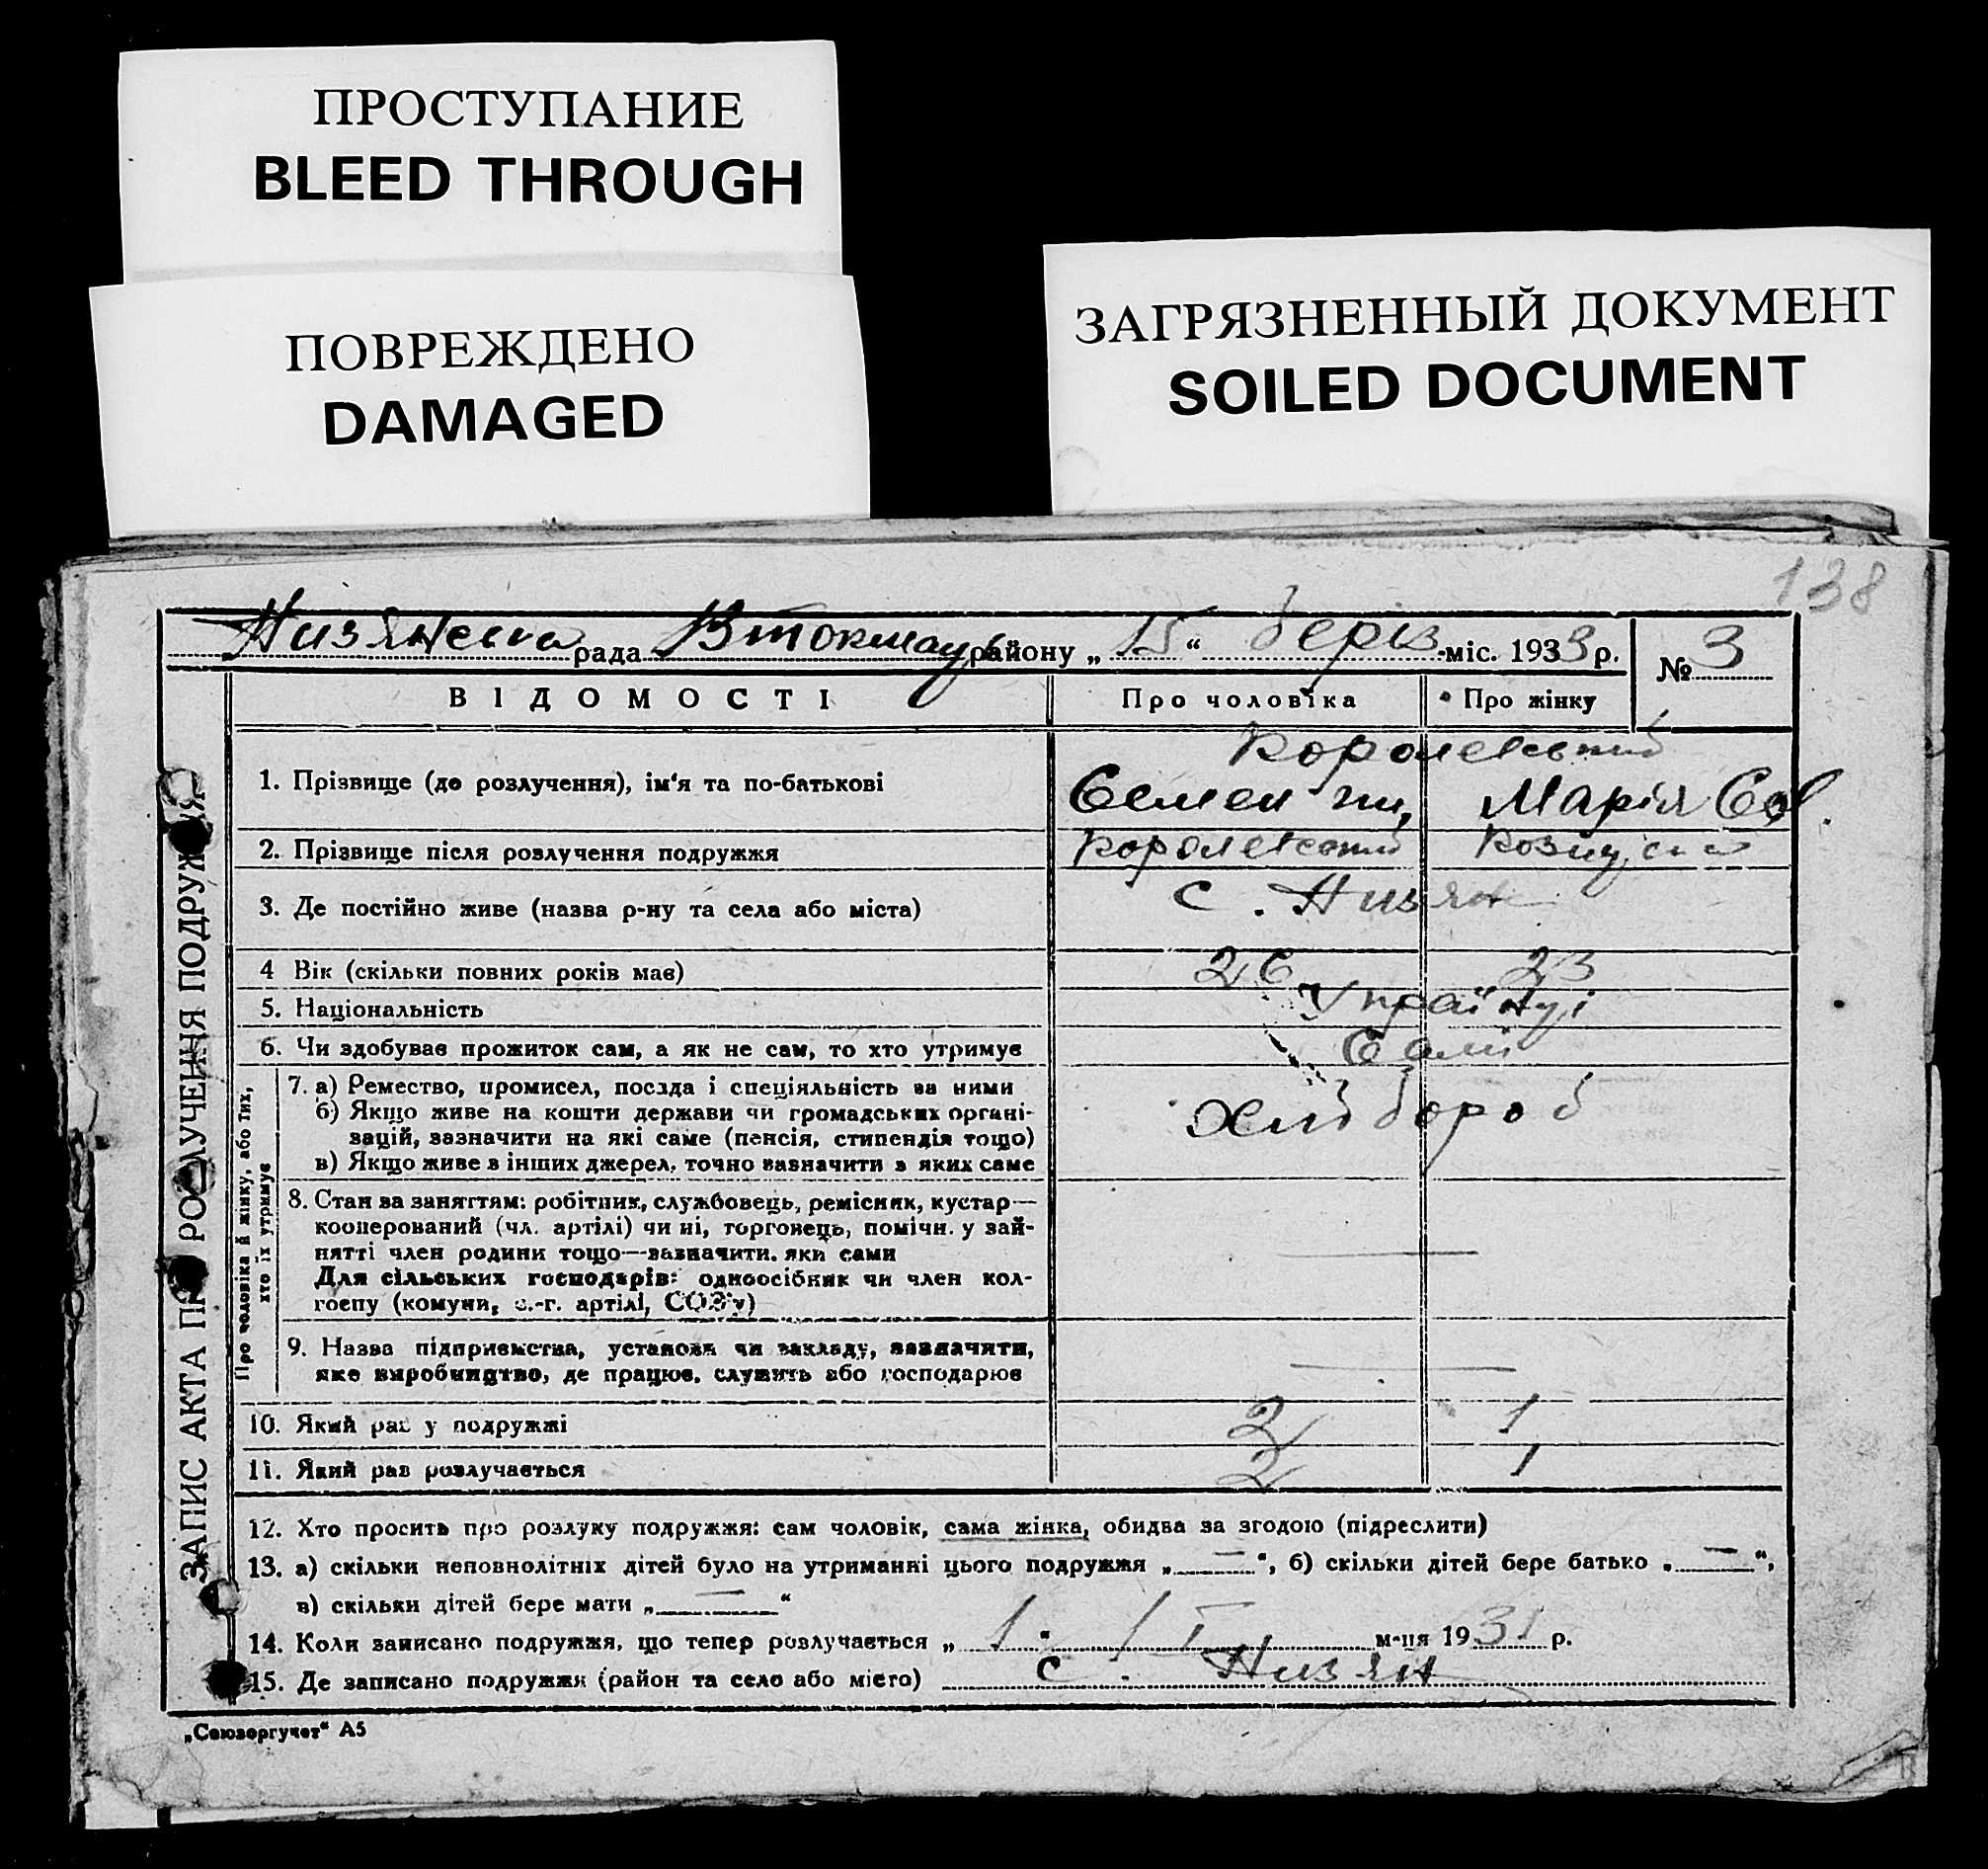 ПРОСТУПАНИЕ
BLEED THROUGH
ПОВРЕЖДЕНО
DAMAGED
ЗАГРЯЗНЕННЫЙ ДОКУМЕНТ
SOILED DOCUMENT
138
рада В токмац району „ 15 “ берез міс. 1933 р. № 3
ЗАПИС АКТА ПРО РОЗЛУЧЕННЯ ПОДРУЖЖЯ
ВІДОМОСТІ Про чоловіка Про жінку
Королевський
1. Прізвище (до розлучення), ім'я та по-батькові Семен Марія
2. Прізвище після розлучення подружжя Королевський
3. Де постійно живе (назва р-ну та села або міста) с. Низян
4 Вік (скільки повних років має) 26 23
5. Національність Українці
6. Чи здобуває прожиток сам, а як не сам, то хто утримує Самі
Про чоловіка й жінку, або тих, хто їх утримує
7. а) Ремество, промисел, посада і спеціяльність за ними
б) Якщо живе на кошти держави чи громадських органі-
зацій, зазначити на які саме (пенсія, стипендія тощо) Хлібороб
в) Якщо живе з інших джерел, точно зазначити з яких саме
8. Стан за заняттям: робітник, службовець, ремісник, кустар—
кооперований (чл. артілі) чи ні, торговець, помічн. у зай-
нятті член родини тощо—зазначити. яки сами
Для сільських господарів: одноосібник чи член кол-
госпу (комуни, с.-г. артілі, СОЗ'у) —
9. Назва підприємства, установи чи закладу, зазначити,
яке виробництво, де працює, служить або господарює —
10. Який раз у подружжі 2 1
11. Який раз розлучається 2 1
12. Хто просить про розлуку подружжя: сам чоловік, сама жінка, обидва за згодою (підреслити)
13. а) скільки неповнолітніх дітей було на утриманні цього подружжя „ — “, б) скільки дітей бере батько „ — “,
в) скільки дітей бере мати „ — “
14. Коли записано подружжя, що тепер розлучається „ 1 “ м-ця 1931 р.
15. Де записано подружжя (район та село або місто) с. Низян
„Союзоргучет“ А5